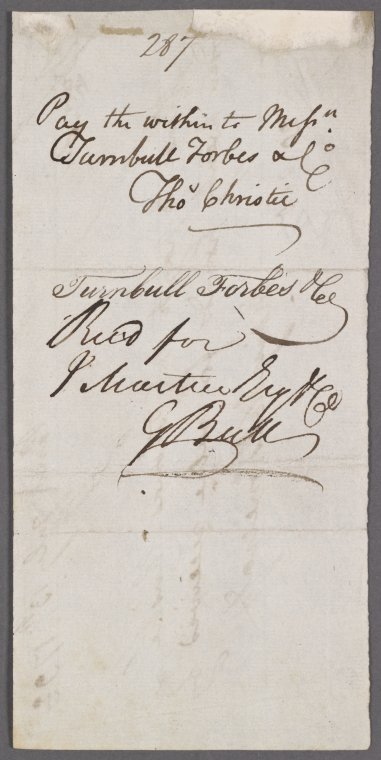 287
Pay the within to Messrs
Turnbull Forbes & Co
Thos Christie
Turnbull Forbes & Co
Recd for
J Martin Esq & Co
G Bull